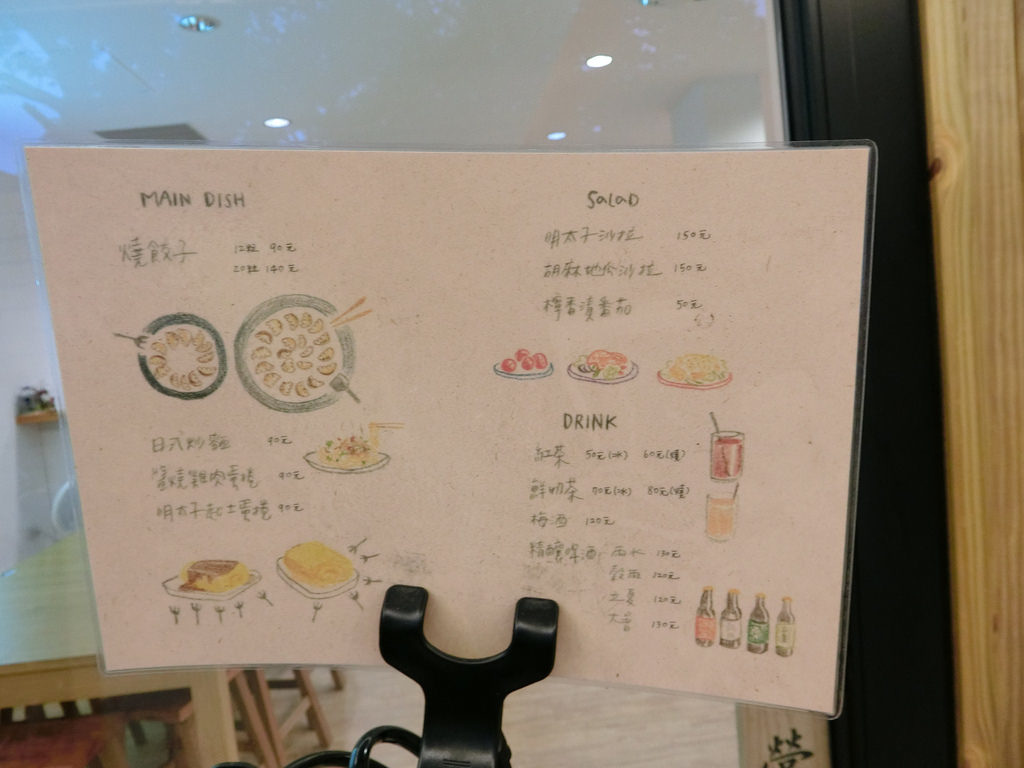 MAIN DISH
燒餃子 12粒 90元
20粒 140元
日式炒麵 90元
醬燒雞肉蛋捲 90元
明太子起士蛋捲 90元
SALAD
明太子沙拉 150元
胡麻地瓜沙拉 150元
檸香漬番茄 50元
DRINK
紅茶 50元(冰) 60元(暖)
鮮奶茶 70元(冰) 80元(暖)
梅酒 120元
精釀啤酒 雨水 130元
穀雨 120元
立夏 120元
大暑 130元
營